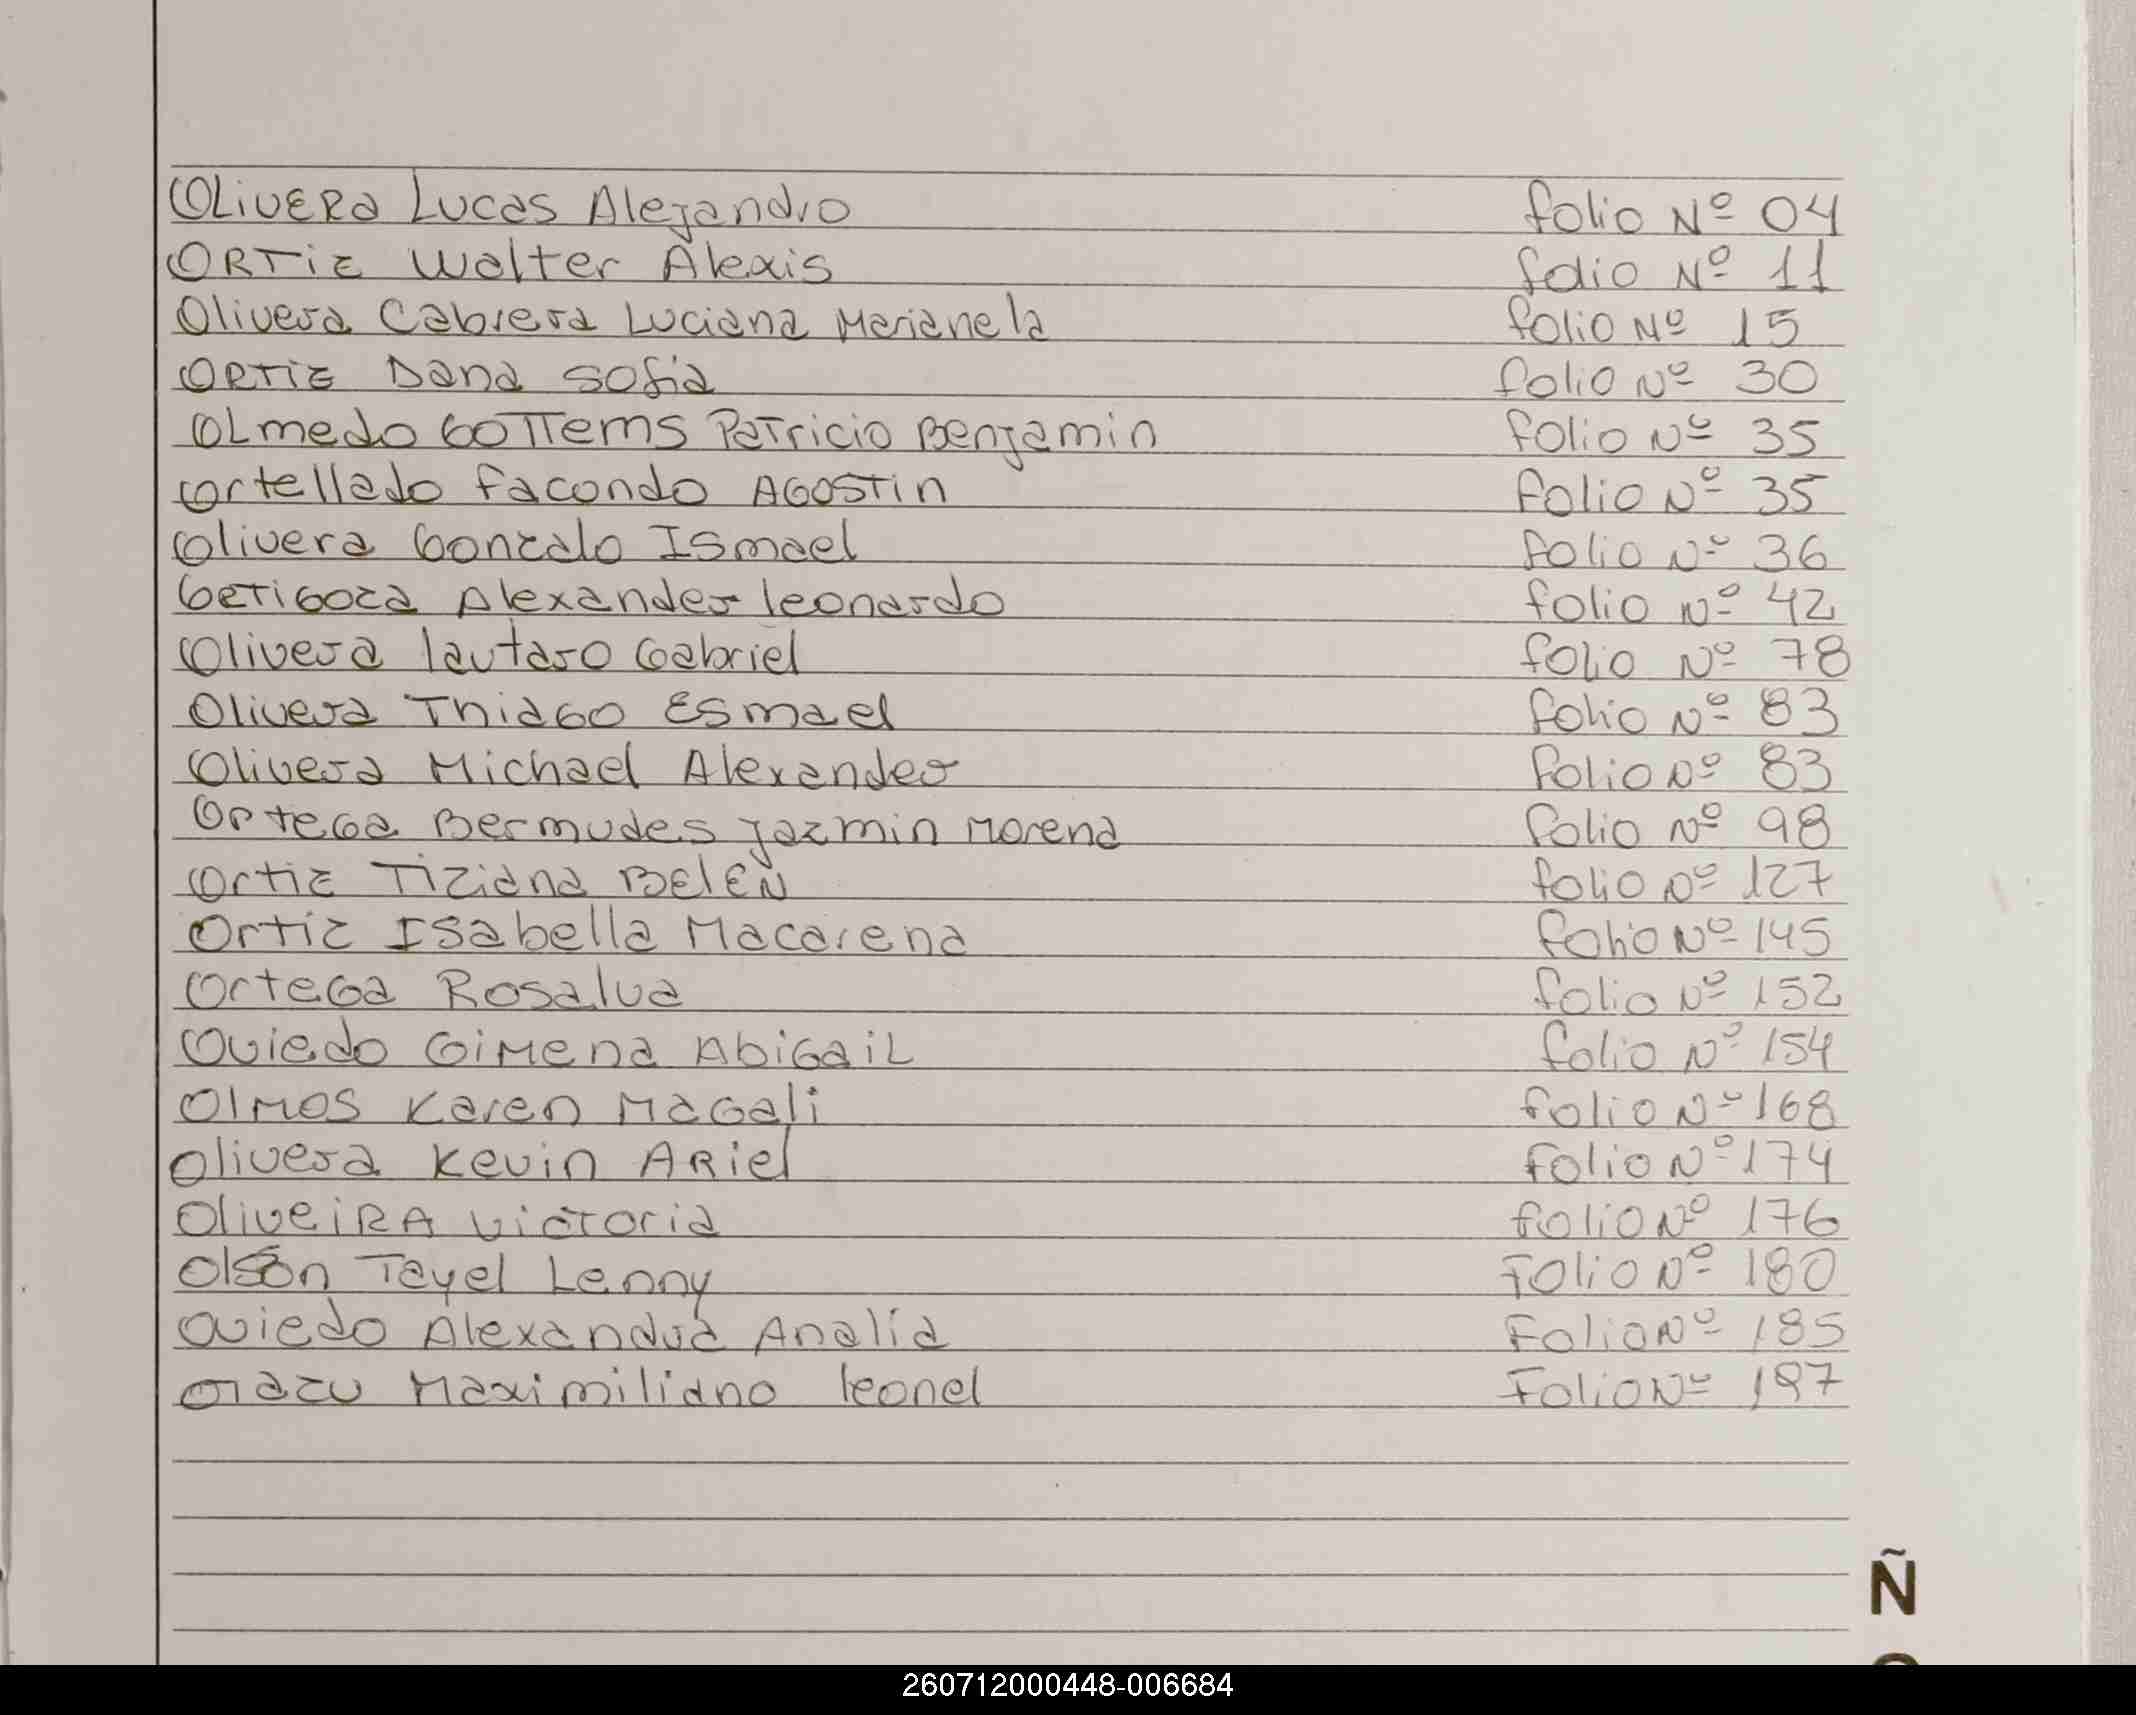 OLivERa Lucas Alejandro folio Nº 04
ORTiz Walter Alexis folio Nº 11
Olivera Cabrera Luciana Marianela folio Nº 15
ORTiz Dana sofia folio Nº 30
OLmedo GOTTems Patricio Benjamin folio Nº 35
ortellado facondo AGOSTin folio Nº 35
olivera Gonzalo Ismael folio Nº 36
Alexander leonardo folio Nº 42
Olivera lautaro Gabriel folio Nº 78
Olivera ThiaGo Esmael folio Nº 83
Olivera Michael Alexander folio Nº 83
OrteGa Bermudes jazmin Morena folio Nº 98
Ortiz Tiziana BElEN folio Nº 127
Ortiz Isabella Macarena folio Nº 145
OrteGa Rosalva folio Nº 152
Oviedo GiMena AbiGaiL folio Nº 154
OlMos Karen MaGali folio Nº 168
olivera Kevin ARiel folio Nº 174
OliveiRA victoria folio Nº 176
Olson Tayel Lenny Folio Nº 180
oviedo Alexandra Analia Folio Nº 185
Maximiliano leonel Folio Nº 187
Ñ
260712000448-006684